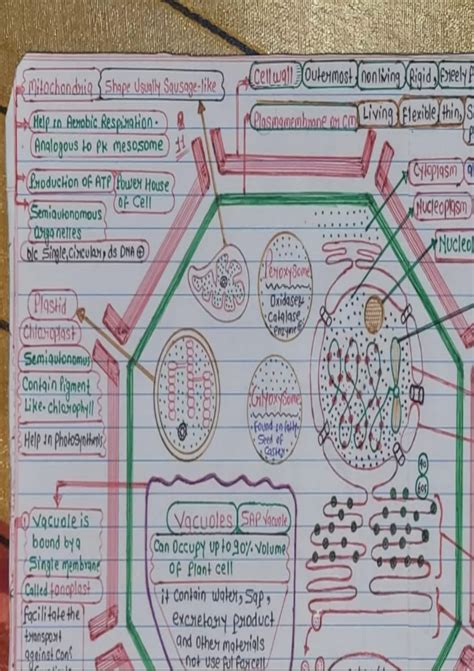 Mitochondria Shape Usually Sausage-like
Help in Aerobic Respiration.
Analogous to PK mesosome
Production of ATP Power House of Cell
Semiautonomous
organelles
b/c Single, circular, ds DNA ⊕
Cell wall Outermost nonliving Rigid, Freely
Plasmamembrane or CM Living Flexible thin,
Cytoplasm
Nucleoplasm
Nucleol
Peroxysome
Oxidases
Catalase
enzyme
Plastid
Chloroplast
Semiautonomus
Contain Pigment
Like-chlorophyll
Help in photosynthesis
Glyoxysome
Found in fatty
Seed of
Castor
40
60s
Vacuole is
bound by a
Single membrane
Called tonoplast
facilitate the
transport
against con
Vacuoles SAP vacuole
Can Occupy up to 90% volume
of plant cell
it contain water, Sap,
excretory product
and other materials
not useful for cell